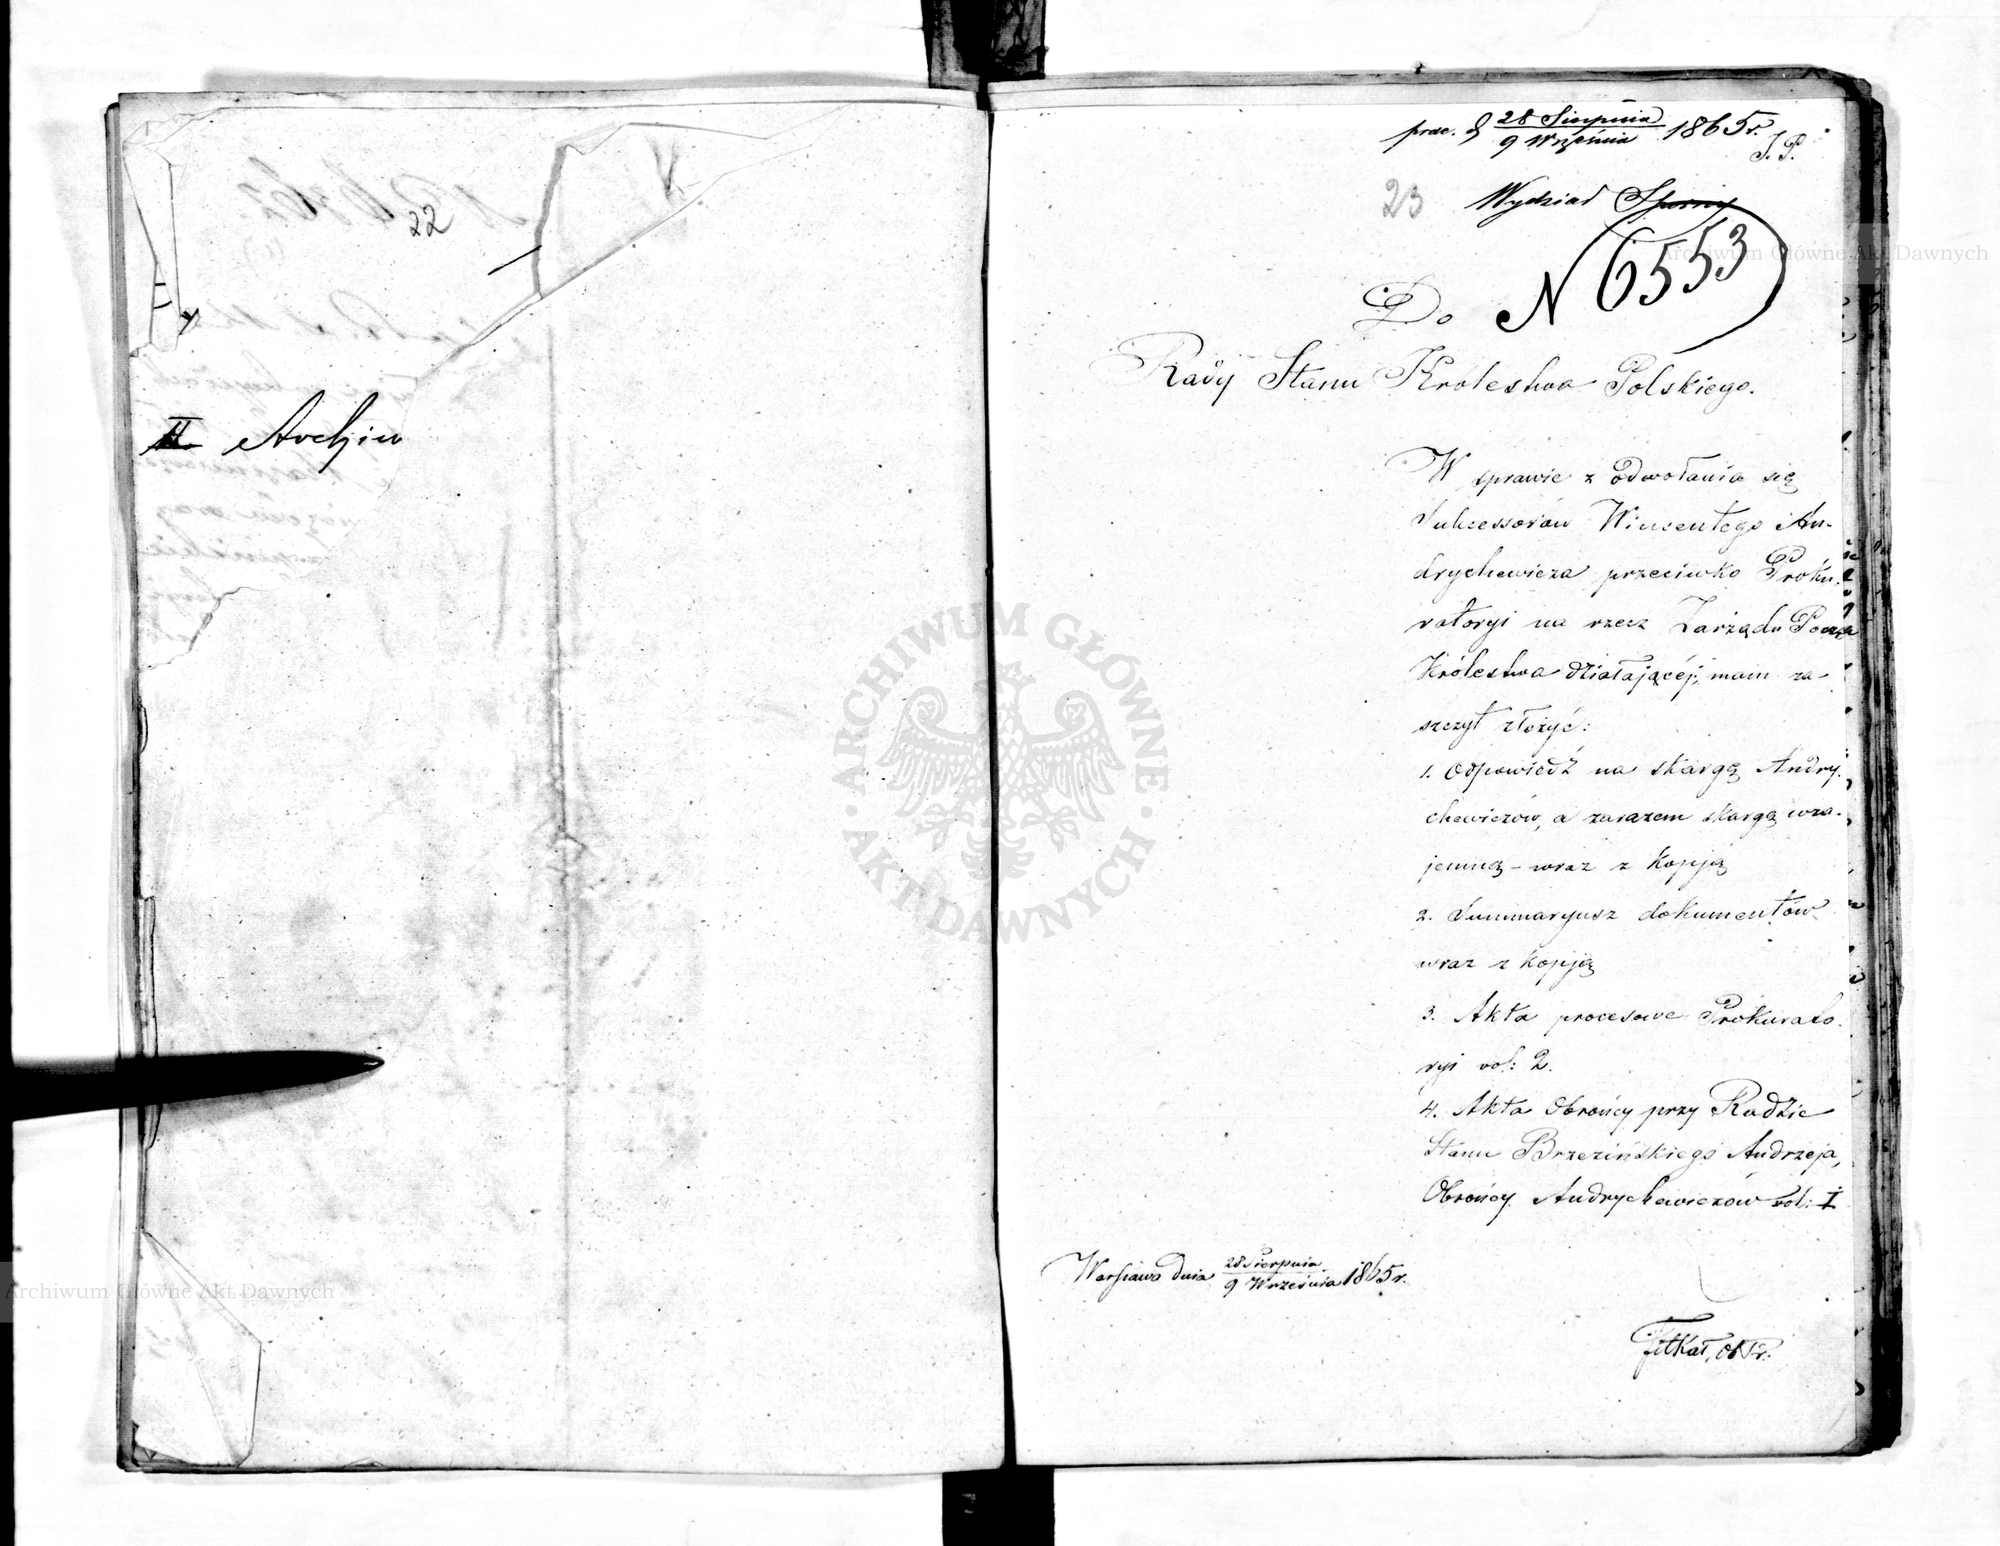 22
II Archiw
praes. d 28 Sierpnia / 9 Września 1865 r.
J. P.
23 Wydział Sporny
N 6553
Do
Rady Stanu Królestwa Polskiego.
W sprawie z odwołania się
Sukcessorów Wincentego An-
drychewicza przeciwko Proku-
ratoryi na rzecz Zarządu Poczt
Królestwa działającéj, mam za-
szczyt złożyć:
1. Odpowiedź na skargę Andry-
chewiczów, a zarazem skargę wza-
jemną – wraz z kopją
2. Summaryusz dokumentów
wraz z kopją
3. Akta procesowe Prokurato-
ryi vol: 2.
4. Akta Obrońcy przy Radzie
Stanu Brzezińskiego Andrzeja,
Obrońcy Andrychewiczów vol: I
Warszawa dnia 28 Sierpnia / 9 Września 1865 r.
ARCHIWUM GŁÓWNE
AKT DAWNYCH
Archiwum Główne Akt Dawnych
Archiwum Główne Akt Dawnych